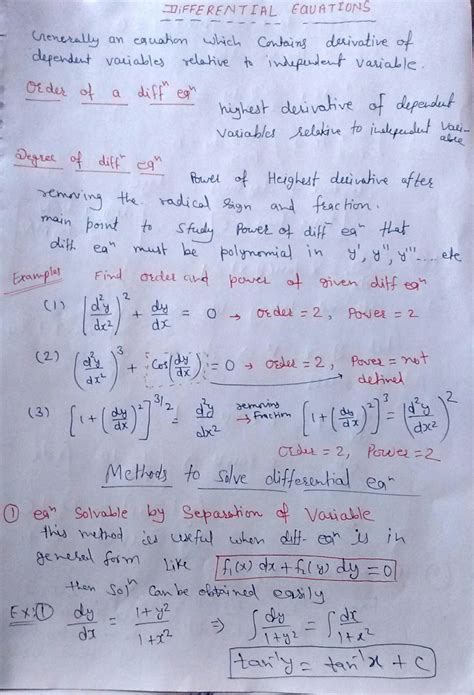 DIFFERENTIAL EQUATIONS
Generally an equation which contains derivative of
dependent variables relative to independent variable.
Order of a diffⁿ eqⁿ
highest derivative of dependent
variables relative to independent vari-
able
Degree of diffⁿ eqⁿ
Power of Heighest derivative after
removing the radical sign and fraction.
main point to study Power of diff eqⁿ that
diff. eqⁿ must be polynomial in y', y'', y'''.... etc
Examples Find order and power of given diff eqⁿ
(1) [d²y/dx²]² + dy/dx = 0 → order = 2, Power = 2
(2) (d²y/dx²)³ + cos(dy/dx) = 0 → order = 2, Power = not
defined
(3) [1 + (dy/dx)²]^3/2 = d²y/dx² removing fraction → [1 + (dy/dx)²]³ = (d²y/dx²)²
Order = 2, Power = 2
Methods to solve differential eqⁿ
① eqⁿ Solvable by Separation of Variable
this method is useful when diff- eqⁿ is in
general form like f₁(x) dx + f₂(y) dy = 0
then solⁿ can be obtained easily
EX:① dy/dx = 1+y²/1+x² ⇒ ∫ dy/1+y² = ∫ dx/1+x²
tan⁻¹y = tan⁻¹x + C